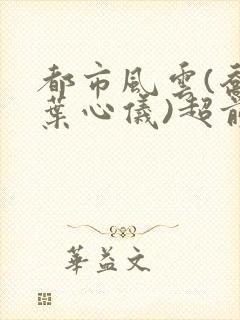 都市風雲(喬
葉心儀)超前
華益文